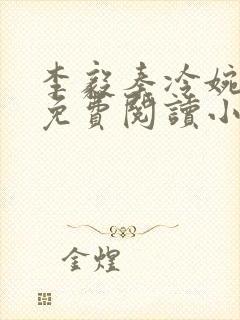 李毅秦冷婉
免費閱讀小
金煌